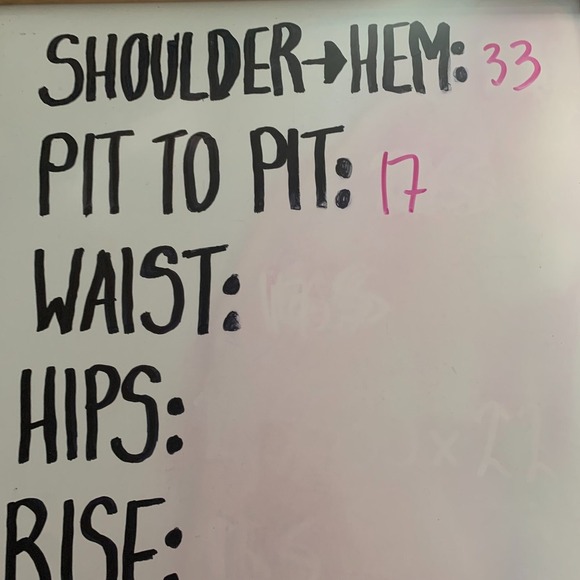 SHOULDER→HEM: 33
PIT TO PIT: 17
WAIST:
HIPS:
RISE: